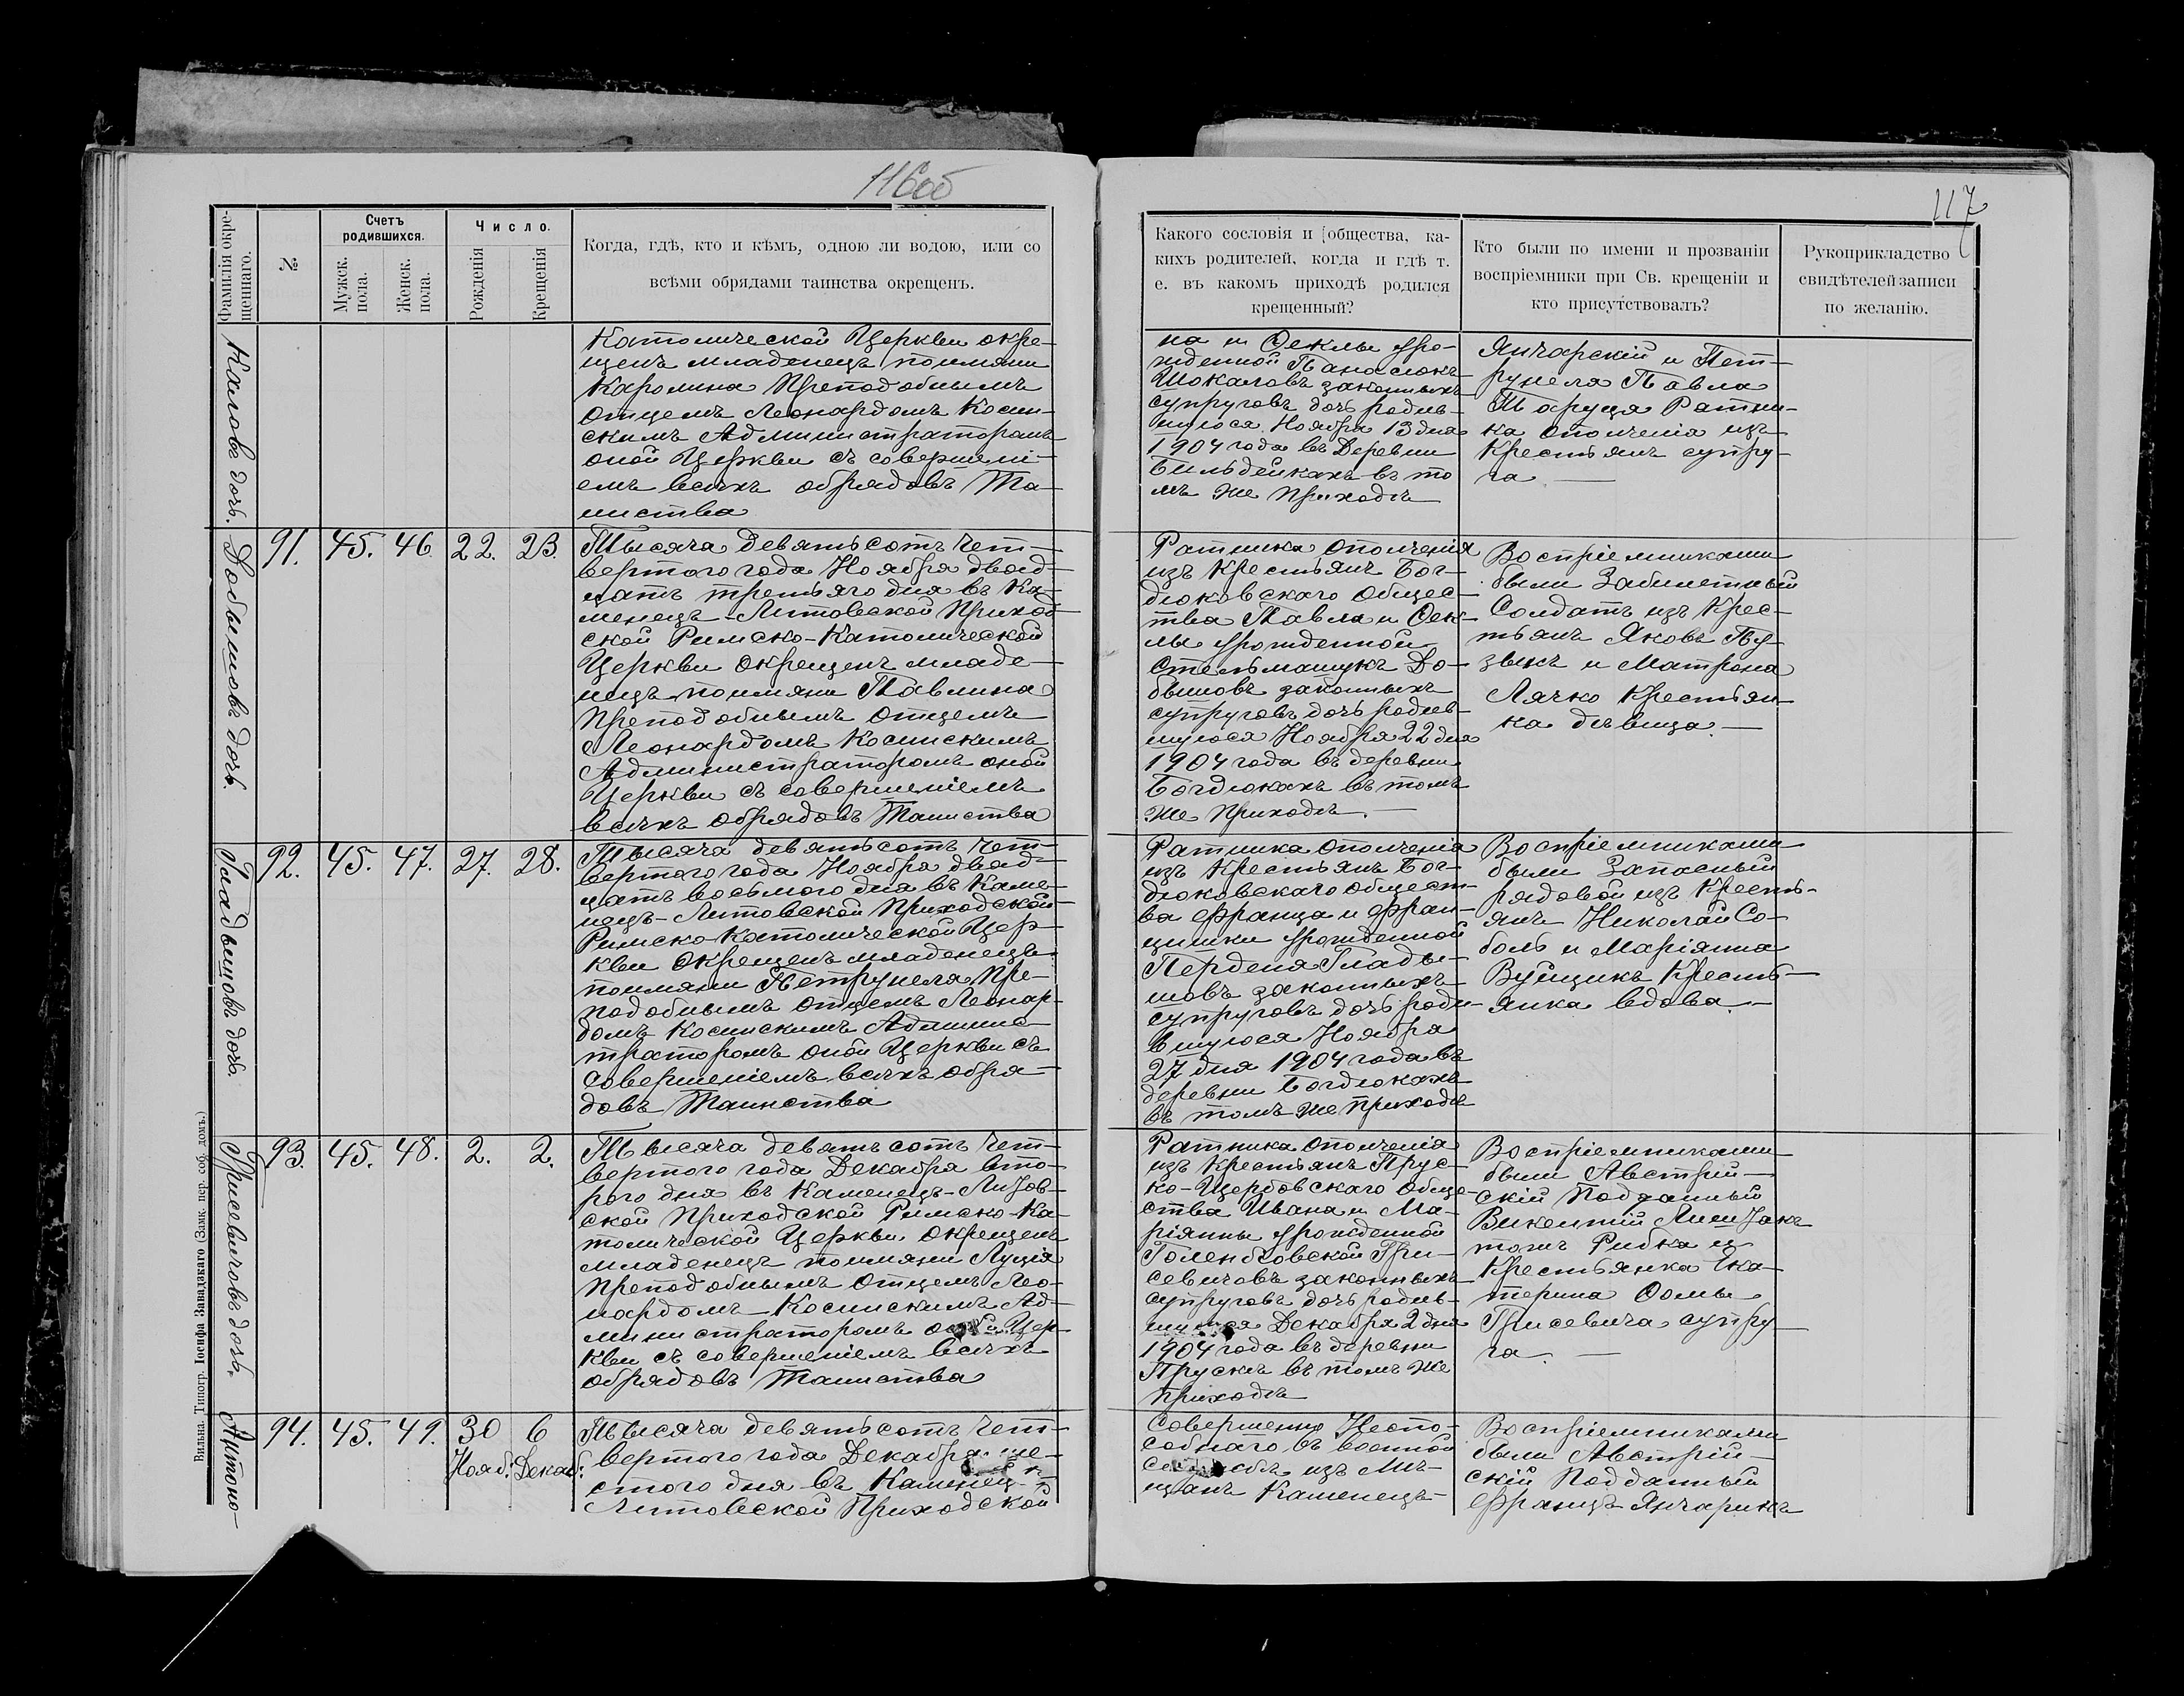 116об
117
Фамилія окре-
щеннаго.
№
Счетъ
родившихся.
Мужск.
пола.
Женск.
пола.
Число.
Рожденія
Крещенія
Когда, гдѣ, кто и кѣмъ, одною ли водою, или со
всѣми обрядами таинства окрещенъ.
Какого сословія и общества, ка-
кихъ родителей, когда и гдѣ т.
е. въ какомъ приходѣ родился
крещенный?
Кто были по имени и прозваніи
воспріемники при Св. крещеніи и
кто присутствовалъ?
Рукоприкладство
свидѣтелей записи
по желанію.
дочь.
Католической Церкви окре-
щенъ младенецъ поимяни
Каролина Преподобнымъ
Отцемъ Леонардомъ Косин-
скимъ Администраторомъ
оной Церкви съ совершені-
емъ всѣхъ обрядовъ Та-
инства
на и Феклы уро-
жденной Панасюкъ
законныхъ
супруговъ дочь родив-
шуюся Ноября 13 дня
1904 года въ Деревни
Бильдейкахъ въ то
мъ же приходѣ
Янчарскій и Пет-
рунеля Павла
Ратни-
ка ополченія изъ
Крестьянъ супру-
га —
Добышовъ дочь.
91. 45. 46. 22. 23.
Тысяча девятьсотъ чет-
вертого года Ноября двад-
цать третьяго дня въ Ка-
менецъ-Литовской Приход-
ской Римско-Католической
Церкви окрещенъ младе-
нецъ поимяни Павлина
Преподобнымъ Отцемъ
Леонардомъ Косинскимъ
Администраторомъ оной
Церкви съ совершеніемъ
всѣхъ обрядовъ Таинства
Ратника ополченія
изъ Крестьянъ Бог-
дюковскаго общес-
тва Павла и Фек-
лы урожденной
Стельмашукъ До-
бышовъ законныхъ
супруговъ дочь родив-
шуюся Ноября 22 дня
1904 года въ деревни
Богдюкахъ въ томъ
же Приходѣ. —
Воспріемниками
были Забилетный
Солдатъ изъ Крес-
тьянъ Яковъ Пу-
зыкъ и Матрона
Лячко Крестьян-
ка дѣвица. —
Гладышовъ дочь.
92. 45. 47. 27. 28.
Тысяча девятьсотъ чет-
вертого года Ноября двад-
цать восьмого дня въ Каме-
нецъ-Литовской Приходской
Римско-Католической Цер-
кви окрещенъ младенецъ
поимяни Петрунеля Пре-
подобнымъ Отцемъ Леонар-
домъ Косинскимъ Админис-
траторомъ оной Церкви съ
совершеніемъ всѣхъ обря-
довъ Таинства
Ратника ополченія
изъ Крестьянъ Бог-
дюковскаго общест-
ва Франца и Фран-
цишки урожденной
Перденя Глады-
шовъ законныхъ
супруговъ дочь роди-
вшуюся Ноября
27 дня 1904 года въ
деревни Богдюкахъ
въ томъ же Приходѣ
Воспріемниками
были Запасный
рядовой изъ Кресть-
янъ Николай Со-
боль и Маріянна
Вуйщикъ Кресть-
янка вдова. —
Грисевичовъ дочь.
93. 45. 48. 2. 2.
Тысяча девятьсотъ чет-
вертого года Декабря вто-
рого дня въ Каменецъ-Литов-
ской Приходской Римско-Ка-
толической Церкви окрещенъ
младенецъ поимяни Луція
Преподобнымъ Отцемъ Лео-
нардомъ Косинскимъ Ад-
министраторомъ оной Цер-
кви съ совершеніемъ всѣхъ
обрядовъ Таинства
Ратника ополченія
изъ Крестьянъ Прус-
ко-Щербовскаго обще-
ства Ивана и Ма-
ріянны урожденной
Голембовской Гри-
севичовъ законныхъ
супруговъ дочь родив-
шуюся Декабря 2 дня
1904 года въ деревни
Прускѣ въ томъ же
приходѣ
Воспріемниками
были Австрій-
скій Подданный
Викентій
Рибка и
Крестьянка Ека-
терина Фомы
Грисевича супру-
га. —
Антоно-
94. 45. 49. 30 6
Нояб. Декаб.
Тысяча девятьсотъ чет-
вертого года Декабря ше-
стого дня въ Каменец-
Литовской Приходской
Совершенно Неспо-
собнаго въ военной
службѣ изъ Мѣ-
щанъ Каменецъ-
Воспріемниками
были Австрій-
скій Подданный
Францъ Янчарикъ
Вильна. Типогр. Іосифа Завадзкаго (Замк. пер. соб. домъ.)